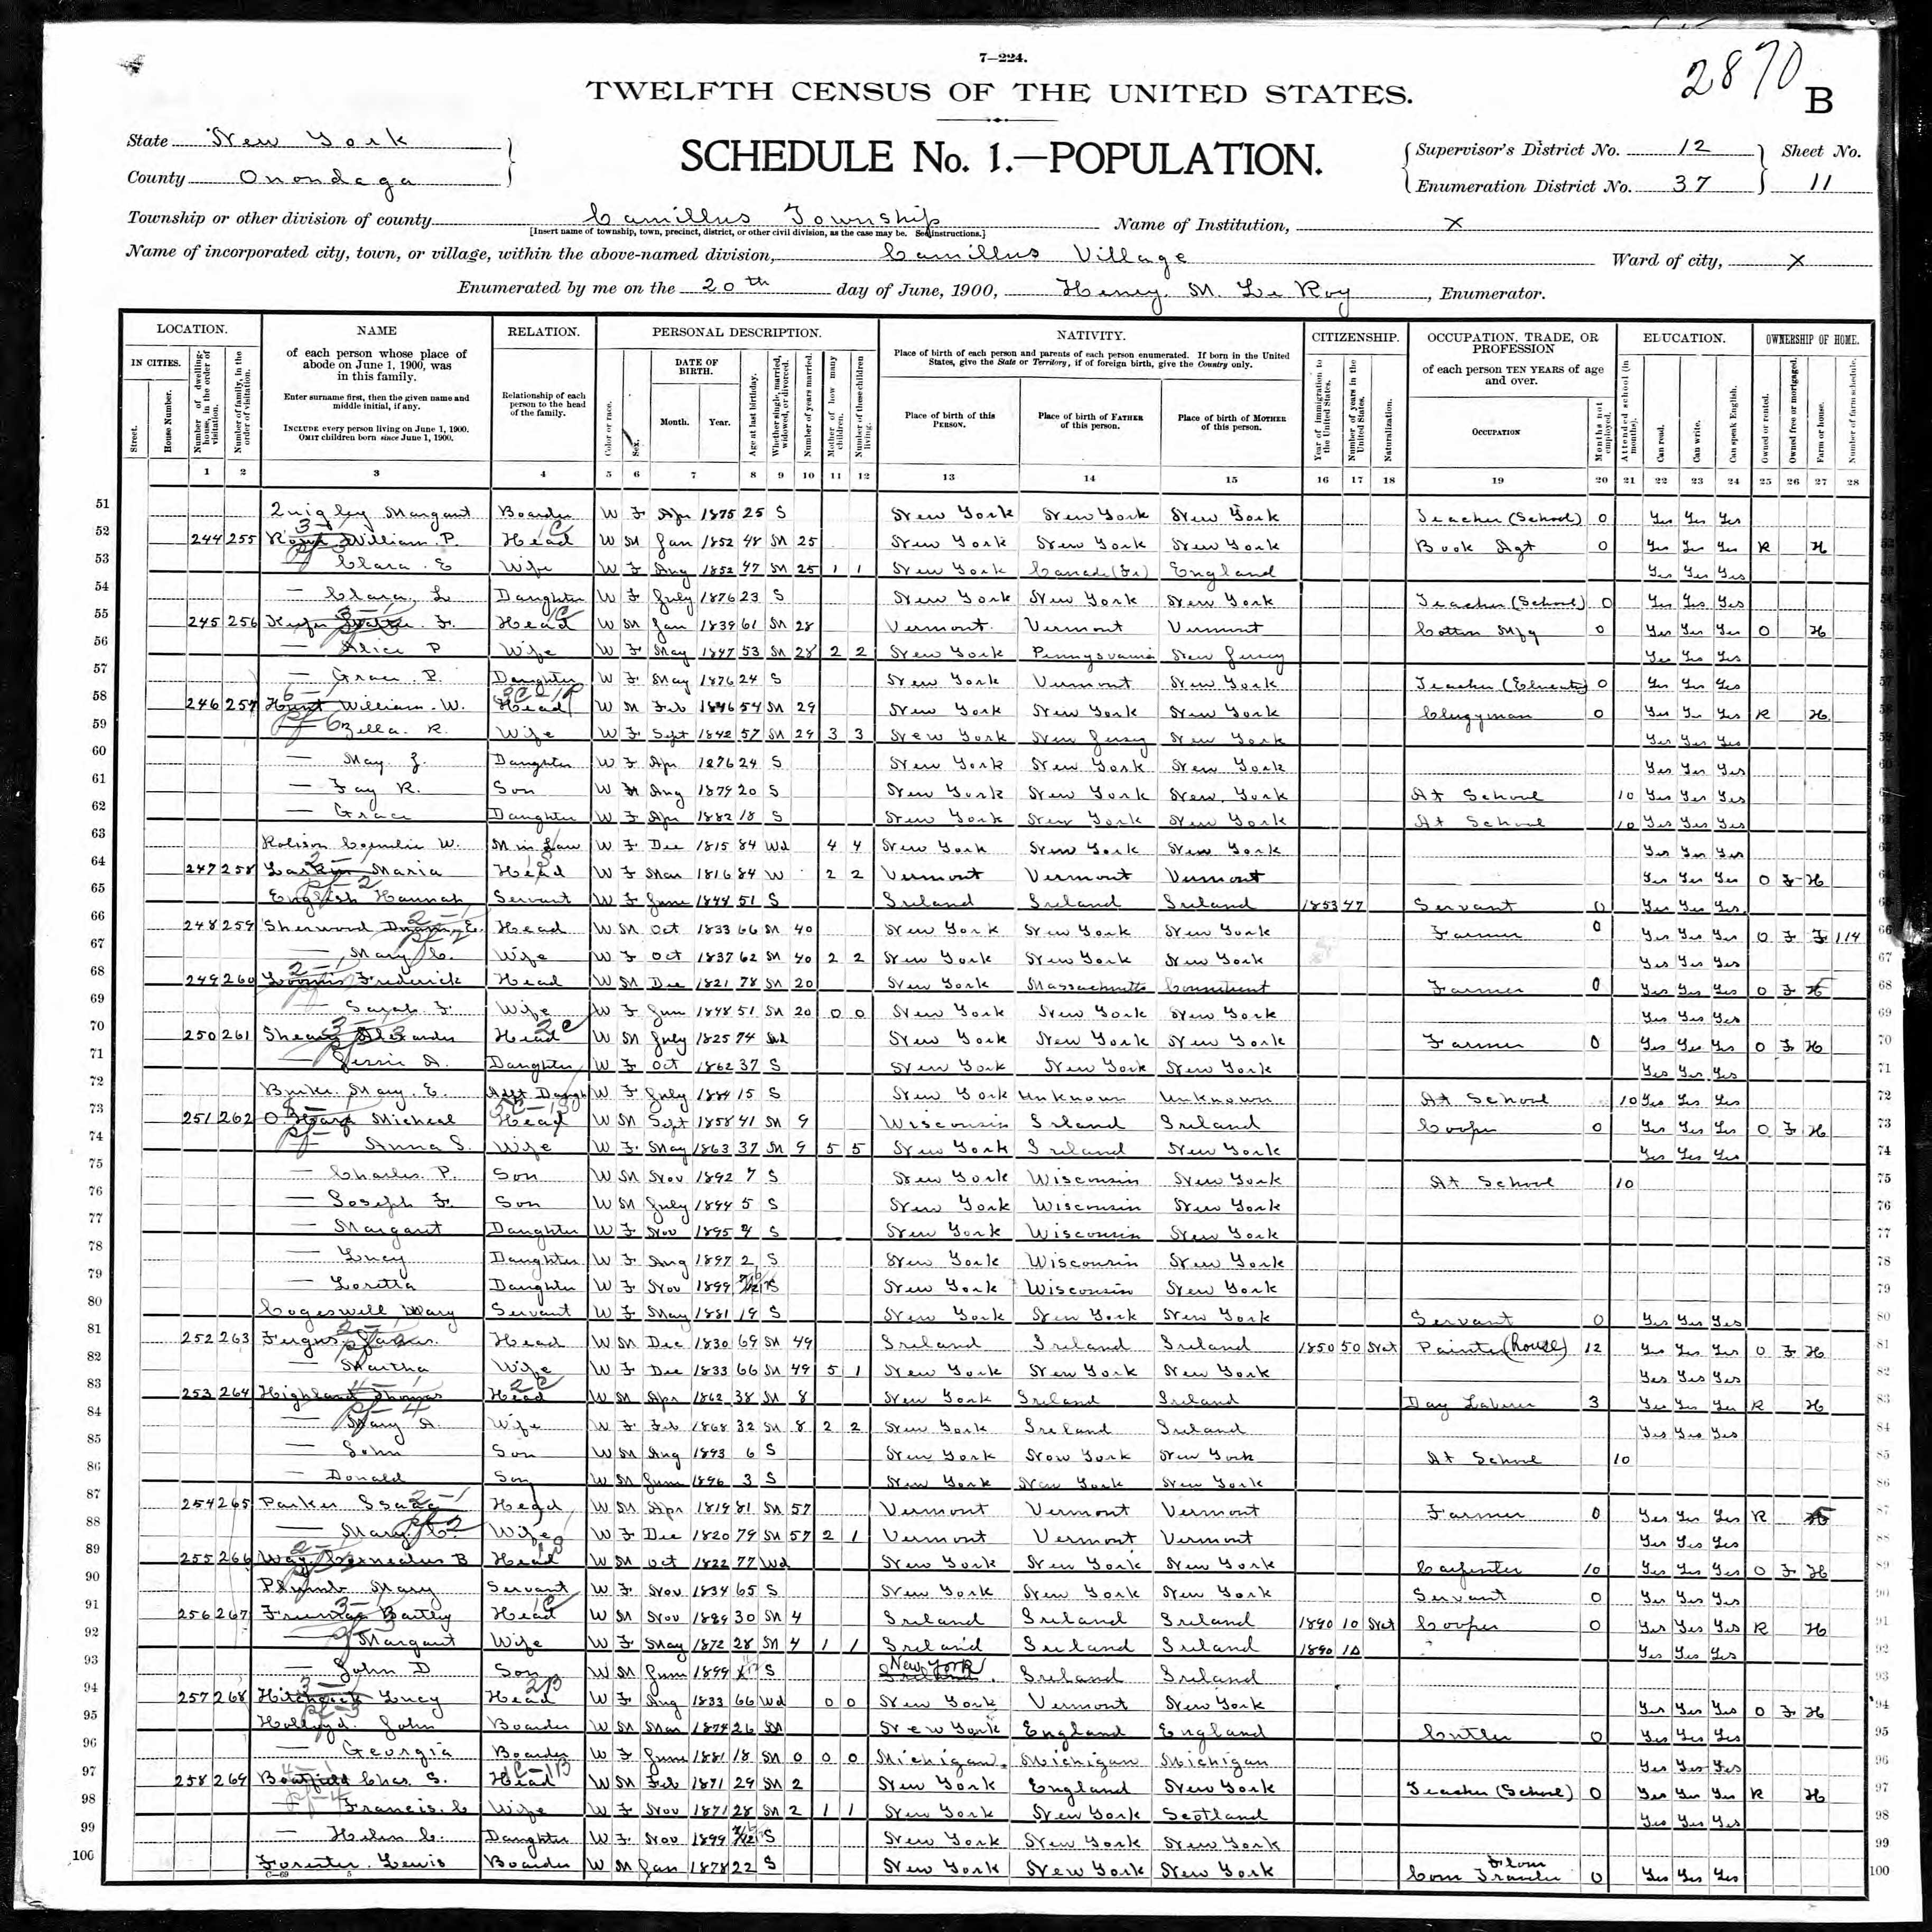 7—224.
2870
B
TWELFTH CENSUS OF THE UNITED STATES.
SCHEDULE No. 1.—POPULATION.
State New York
County Onondaga
Supervisor's District No. 12
Enumeration District No. 37
Sheet No. 11
Township or other division of county Camillus Township
[Insert name of township, town, precinct, district, or other civil division, as the case may be. See instructions.]
Name of Institution, X
Name of incorporated city, town, or village, within the above-named division, Camillus Village
Ward of city, X
Enumerated by me on the 20th day of June, 1900, Henry M. Le Roy, Enumerator.
LOCATION.
IN CITIES.
Street.
House Number.
Number of dwelling-house, in the order of visitation.
Number of family, in the order of visitation.
NAME
of each person whose place of abode on June 1, 1900, was in this family.
Enter surname first, then the given name and middle initial, if any.
INCLUDE every person living on June 1, 1900.
OMIT children born since June 1, 1900.
RELATION.
Relationship of each person to the head of the family.
PERSONAL DESCRIPTION.
Color or race.
Sex.
DATE OF BIRTH.
Month.
Year.
Age at last birthday.
Whether single, married, widowed, or divorced.
Number of years married.
Mother of how many children.
Number of these children living.
NATIVITY.
Place of birth of each person and parents of each person enumerated. If born in the United States, give the State or Territory; if of foreign birth, give the Country only.
Place of birth of this PERSON.
Place of birth of FATHER of this person.
Place of birth of MOTHER of this person.
CITIZENSHIP.
Year of immigration to the United States.
Number of years in the United States.
Naturalization.
OCCUPATION, TRADE, OR PROFESSION
of each person TEN YEARS of age and over.
OCCUPATION
Months not employed.
EDUCATION.
Attended school (in months).
Can read.
Can write.
Can speak English.
OWNERSHIP OF HOME.
Owned or rented.
Owned free or mortgaged.
Farm or house.
Number of farm schedule.
1 2 3 4 5 6 7 8 9 10 11 12 13 14 15 16 17 18 19 20 21 22 23 24 25 26 27 28
51 Quigley Margaret Boarder W F Apr 1875 25 S New York New York New York Teacher (School) 0 Yes Yes Yes
52 244 255 William P. Head W M Jan 1852 48 M 25 New York New York New York Book Agt 0 Yes Yes Yes R H
53 — Clara E Wife W F Aug 1852 47 M 25 1 1 New York Canada (Fr) England Yes Yes Yes
54 — Clara L Daughter W F July 1876 23 S New York New York New York Teacher (School) 0 Yes Yes Yes
55 245 256 F. Head W M Jan 1839 61 M 28 Vermont Vermont Vermont Cotton Mfg 0 Yes Yes Yes O H
56 — Alice P Wife W F May 1847 53 M 28 2 2 New York Pennsyvania New Jersey Yes Yes Yes
57 — Grace P. Daughter W F May 1876 24 S New York Vermont New York Teacher 0 Yes Yes Yes
58 246 257 Hunt William W. Head W M Feb 1846 54 M 29 New York New York New York Clergyman 0 Yes Yes Yes R H
59 — Zella R. Wife W F Sept 1842 57 M 29 3 3 New York New Jersey New York Yes Yes Yes
60 — May Z. Daughter W F Apr 1876 24 S New York New York New York Yes Yes Yes
61 — Fay R. Son W M Aug 1879 20 S New York New York New York At School 10 Yes Yes Yes
62 — Grace Daughter W F Apr 1882 18 S New York New York New York At School 10 Yes Yes Yes
63 Robison W. M in Law W F Dec 1815 84 Wd 4 4 New York New York New York Yes Yes Yes
64 247 258 Maria Head W F Mar 1816 84 W 2 2 Vermont Vermont Vermont Yes Yes Yes O F H
65 English Hannah Servant W F June 51 S Ireland Ireland Ireland 1853 47 Servant 0 Yes Yes Yes
66 248 259 Sherwood E. Head W M Oct 1833 66 M 40 New York New York New York Farmer 0 Yes Yes Yes O F F 114
67 — Mary C. Wife W F Oct 1837 62 M 40 2 2 New York New York New York Yes Yes Yes
68 249 260 Loomis Frederick Head W M Dec 1821 78 M 20 New York Massachusetts Connecticut Farmer 0 Yes Yes Yes O F H
69 — Sarah F. Wife W F 1848 51 M 20 0 0 New York New York New York Yes Yes Yes
70 250 261 Alexander Head W M July 1825 74 Wd New York New York New York Farmer 0 Yes Yes Yes O F H
71 — Jessie A. Daughter W F Oct 1862 37 S New York New York New York Yes Yes Yes
72 Burke Mary E. Adpt Daugh W F July 1884 15 S New York Unknown Unknown At School 10 Yes Yes Yes
73 251 262 O'Hara Micheal Head W M Sept 1858 41 M 9 Wisconsin Ireland Ireland Cooper 0 Yes Yes Yes O F H
74 — Anna S. Wife W F May 1863 37 M 9 5 5 New York Ireland New York Yes Yes Yes
75 — Charles P. Son W M Nov 1892 7 S New York Wisconsin New York At School 10
76 — Joseph F. Son W M July 1894 5 S New York Wisconsin New York
77 — Margaret Daughter W F Nov 1895 4 S New York Wisconsin New York
78 — Lucy Daughter W F Aug 1897 2 S New York Wisconsin New York
79 — Loretta Daughter W F Nov 1899 S New York Wisconsin New York
80 Cogeswell Mary Servant W F May 1881 19 S New York New York New York Servant 0 Yes Yes Yes
81 252 263 Fergus James Head W M Dec 1830 69 M 49 Ireland Ireland Ireland 1850 50 Nat Painter (house) 12 Yes Yes Yes O F H
82 — Martha Wife W F Dec 1833 66 M 49 5 1 New York New York New York Yes Yes Yes
83 253 264 Highland Thomas Head W M Apr 1862 38 M 8 New York Ireland Ireland Day Laborer 3 Yes Yes Yes R H
84 — Mary A. Wife W F Feb 1868 32 M 8 2 2 New York Ireland Ireland Yes Yes Yes
85 — John Son W M Aug 1893 6 S New York New York New York At School 10
86 — Donald Son W M June 1896 3 S New York New York New York
87 254 265 Parker Isaac Head W M Apr 1819 81 M 57 Vermont Vermont Vermont Farmer 0 Yes Yes Yes R
88 — Mary C. Wife W F Dec 1820 79 M 57 2 1 Vermont Vermont Vermont Yes Yes Yes
89 255 266 Way Cornelius B Head W M Oct 1822 77 Wd New York New York New York Carpenter 10 Yes Yes Yes O F H
90 Plumb Mary Servant W F Nov 1834 65 S New York New York New York Servant 0 Yes Yes Yes
91 256 267 Bartley Head W M Nov 30 M 4 Ireland Ireland Ireland 1890 10 Nat Cooper 0 Yes Yes Yes R H
92 — Margaret Wife W F May 1872 28 M 4 1 1 Ireland Ireland Ireland 1890 10 Yes Yes Yes
93 — John D Son W M June 1899 S New York Ireland Ireland
94 257 268 Hitchcock Lucy Head W F Aug 1833 66 Wd 0 0 New York Vermont New York Yes Yes Yes O F H
95 Holloyd John Boarder W M Mar 1874 26 M New York England England Cutler 0 Yes Yes Yes
96 — Georgia Boarder W F June 1881 18 M 0 0 0 Michigan Michigan Michigan Yes Yes Yes
97 258 269 Chas. S. Head W M Feb 1871 29 M 2 New York England New York Teacher (School) 0 Yes Yes Yes R H
98 — Francis C Wife W F Nov 1871 28 M 2 1 1 New York New York Scotland Yes Yes Yes
99 — Helen C. Daughter W F Nov 1899 S New York New York New York
100 Forester Lewis Boarder W M Jan 1878 22 S New York New York New York Com Traveler 0 Yes Yes Yes